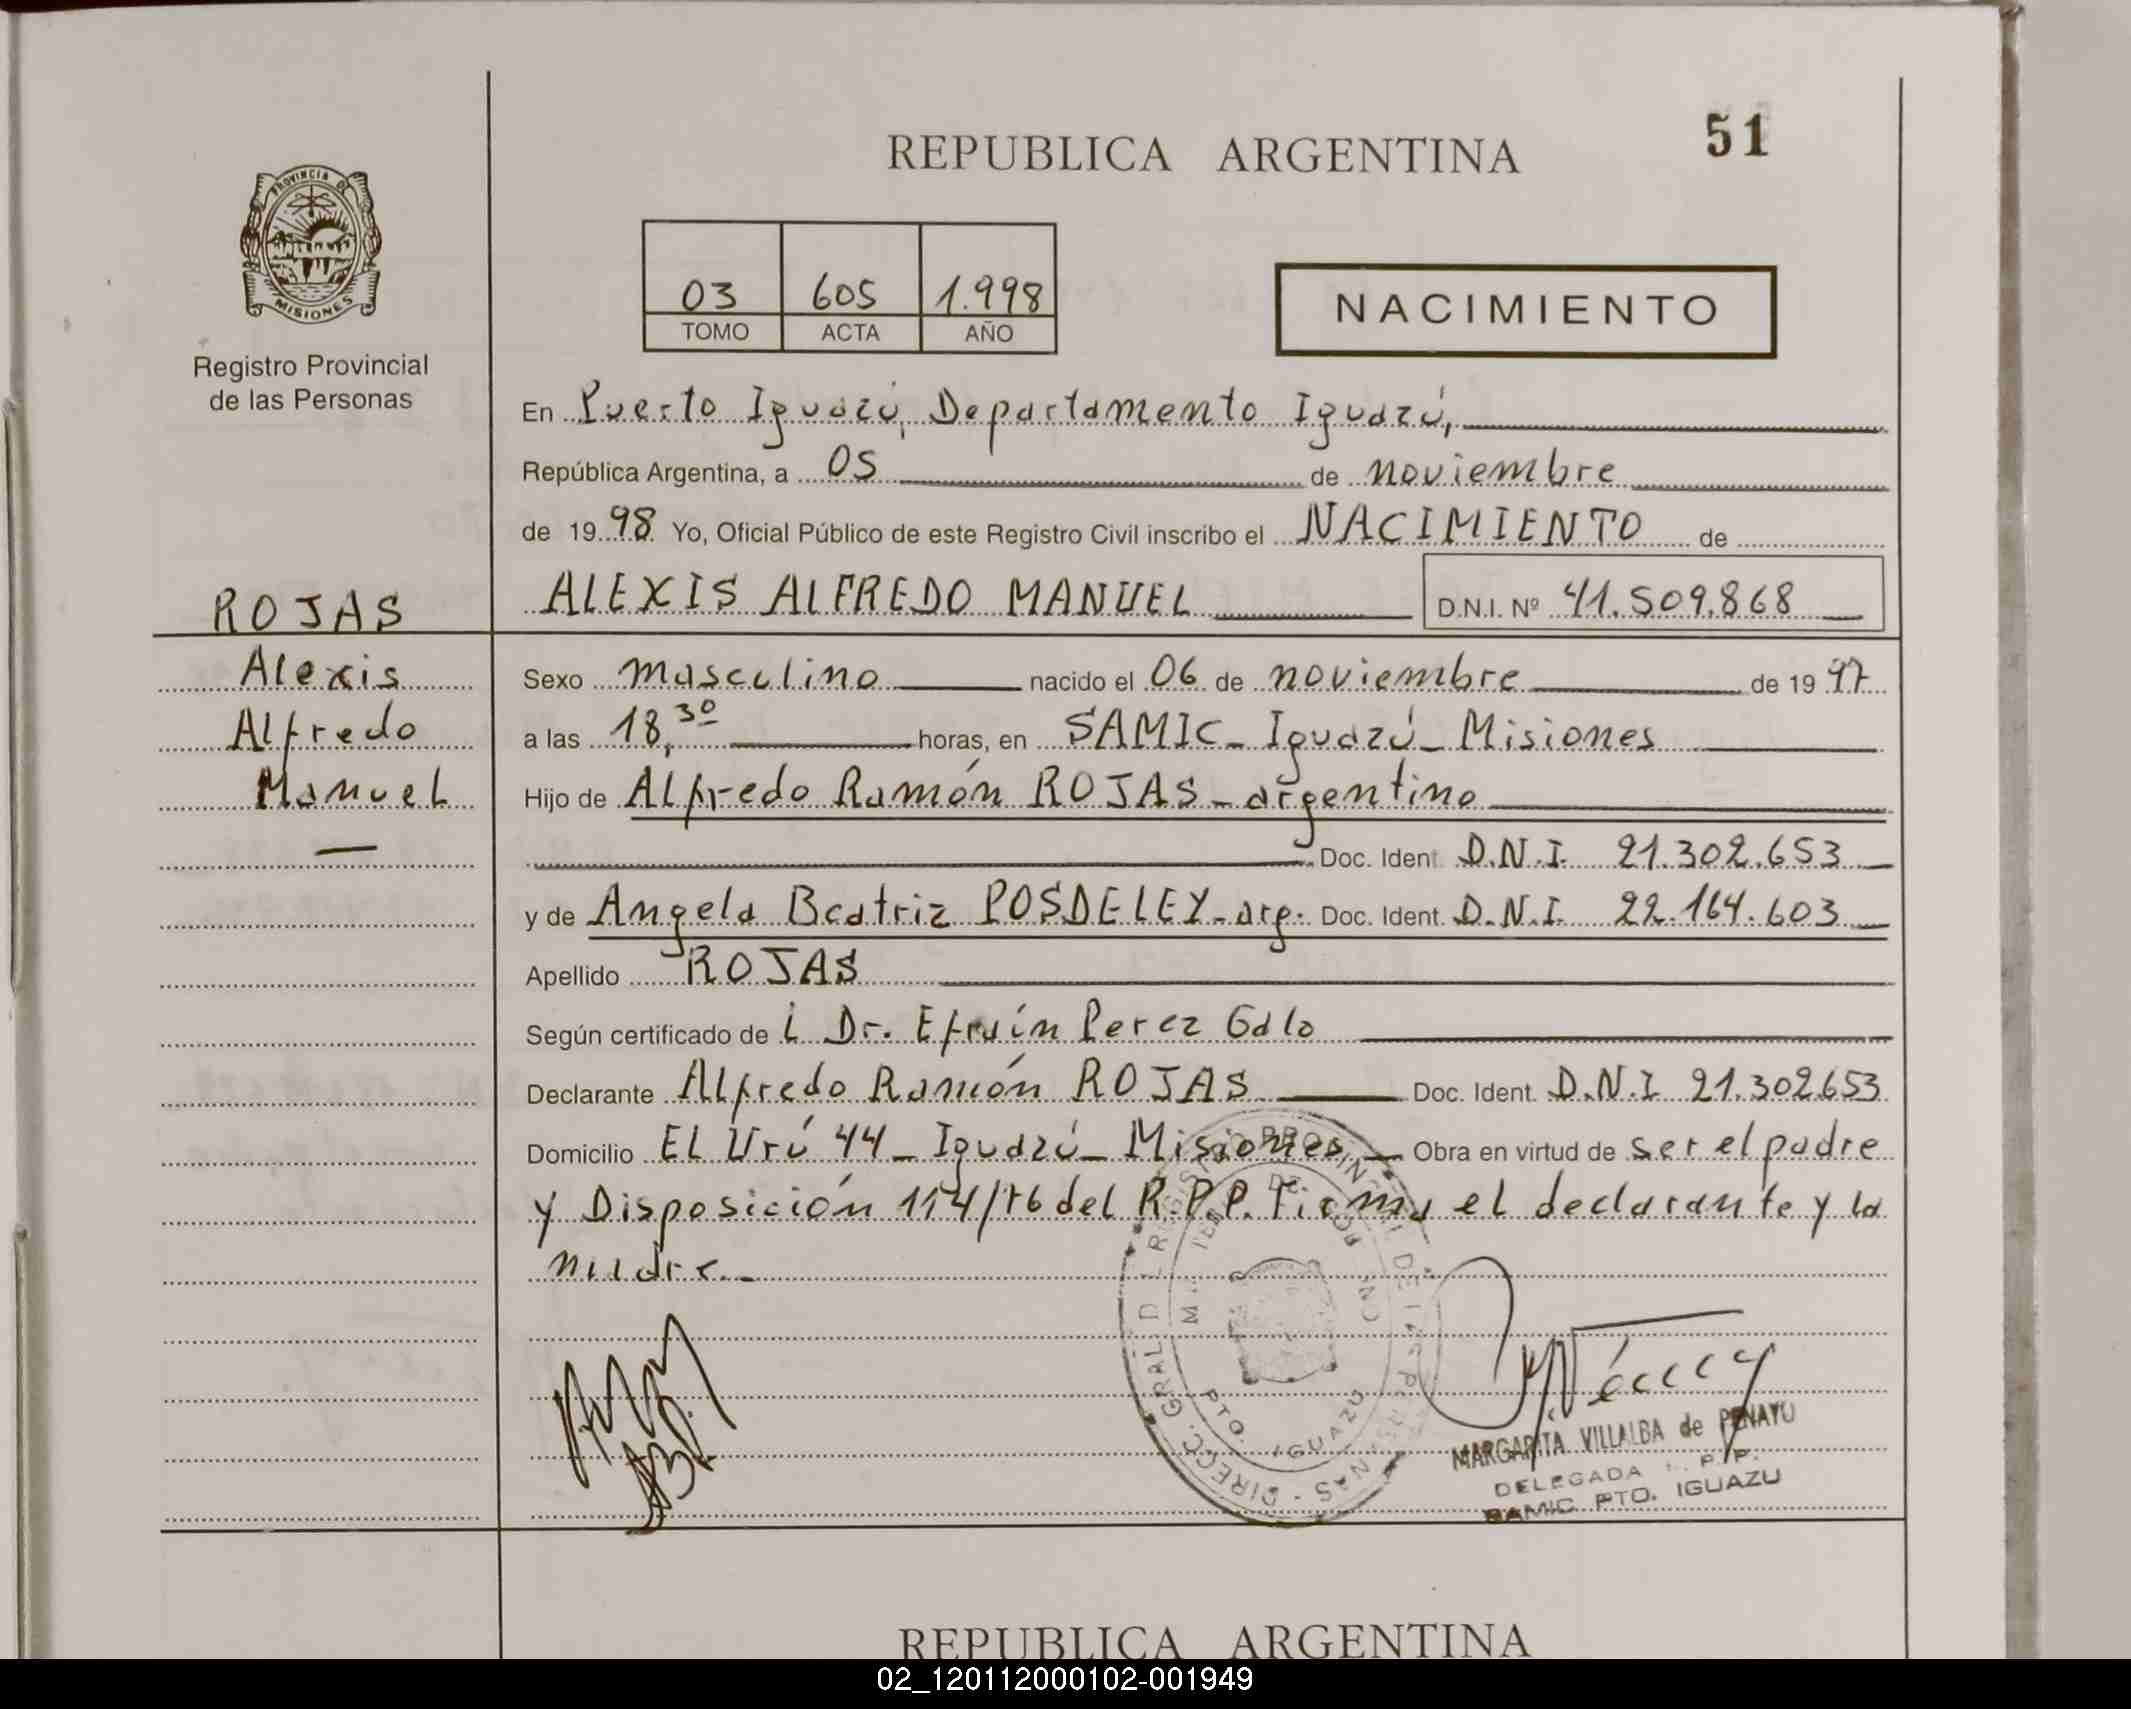 51
REPUBLICA ARGENTINA
PROVINCIA DE
MISIONES
Registro Provincial
de las Personas
03 605 1.998
TOMO ACTA AÑO
NACIMIENTO
En Puerto Iguazú, Departamento Iguazú,
República Argentina, a 05 de noviembre
de 1998 Yo, Oficial Público de este Registro Civil inscribo el NACIMIENTO de
ALEXIS ALFREDO MANUEL D.N.I. Nº 41.509.868
ROJAS
Alexis
Alfredo
Manuel
Sexo masculino nacido el 06 de noviembre de 1997
a las 18,30 horas, en SAMIC - Iguazú - Misiones
Hijo de Alfredo Ramón ROJAS - argentino
Doc. Ident. D.N.I. 21.302.653
y de Angela Beatriz POSDELEY - arg. Doc. Ident. D.N.I. 22.164.603
Apellido ROJAS
Según certificado de l Dr. Efraín Perez Galo
Declarante Alfredo Ramón ROJAS Doc. Ident. D.N.I 21.302653
Domicilio El Urú 44 - Iguazú - Misiones - Obra en virtud de ser el padre
y Disposición 114/76 del R.P.P. Firma el declarante y la
madre -
PTO. IGUAZU
MARGARITA VILLALBA de PENAYO
DELEGADA R. P. P.
SAMIC PTO. IGUAZU
REPUBLICA ARGENTINA
02_120112000102-001949